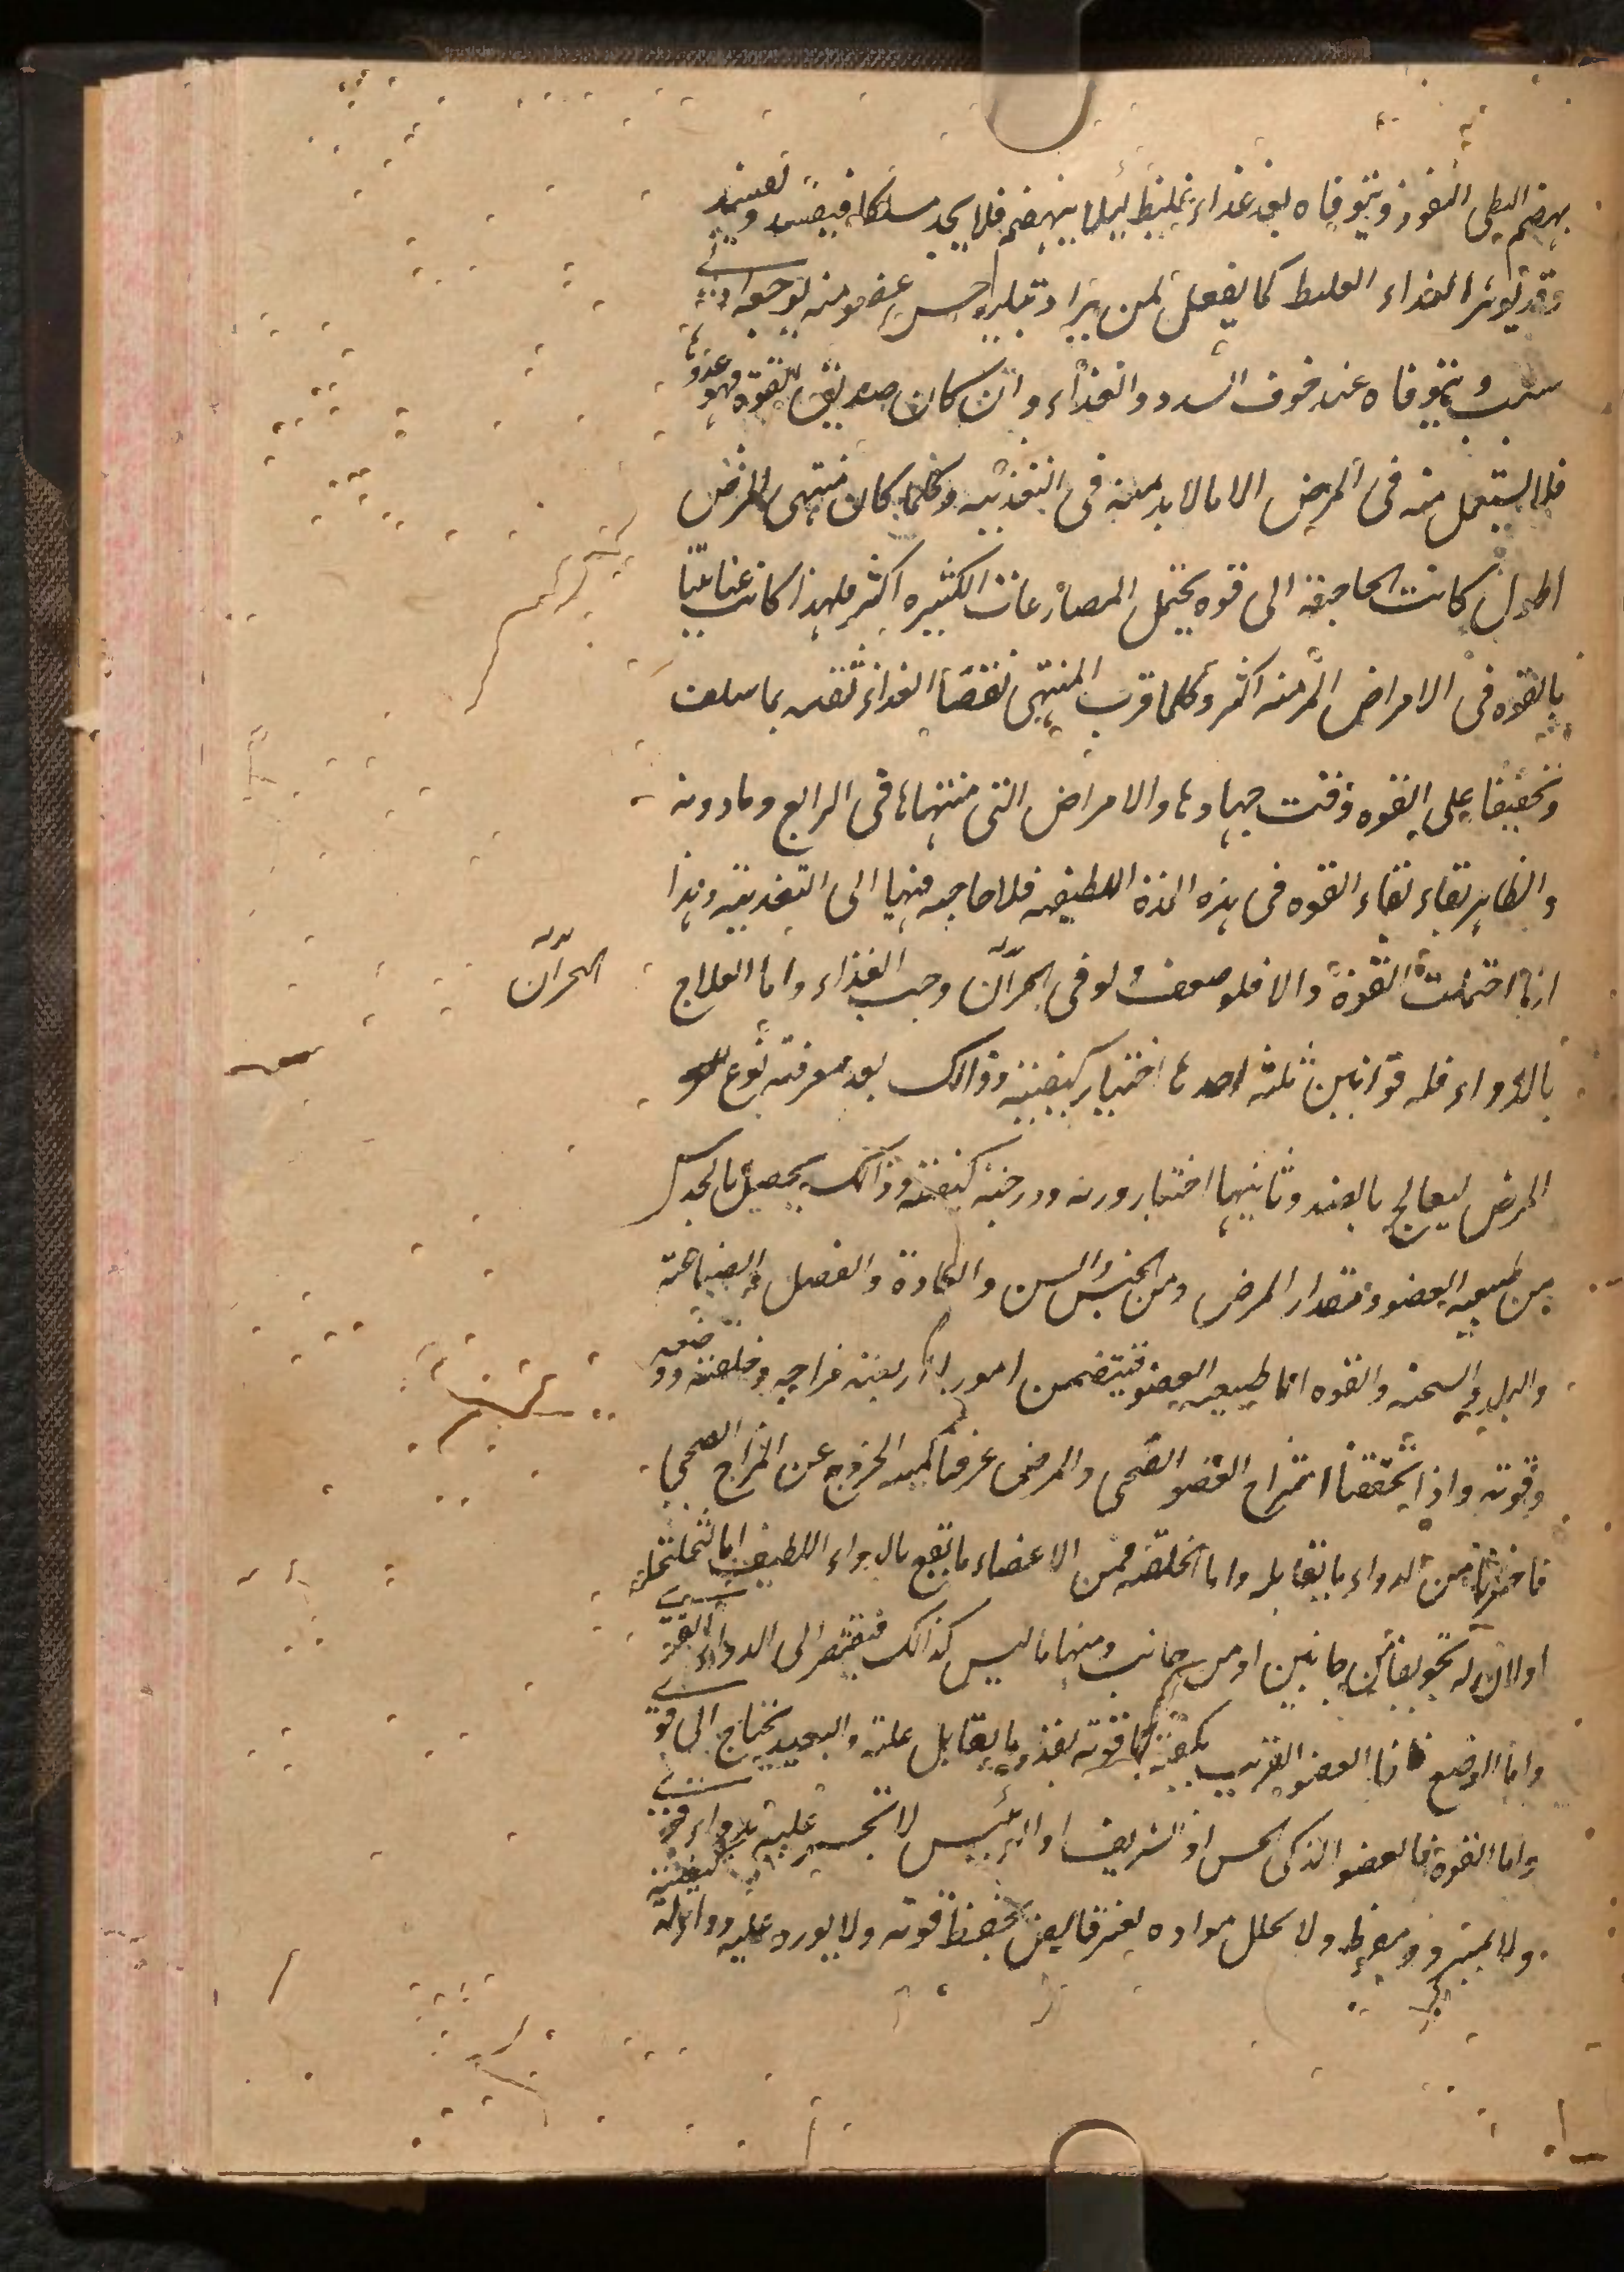 بهضم البطئ النفوذ ويتوقاه بعد غذاء غليظ ليلا ينهضم فلا يجد مسلكا فيفسد ويفسد
وقد يوثر الغذاء الغليظ كما يفعل لمن يراد تبليد حس عضو منه لوجعه ادنى
سبب ويتوقاه عند خوف السدد والغذاء وان كان صديق القوة فهو عدوها
فلا يستعمل منه فى المرض الا ما لا بد منه فى التغذيه وكلما كان منتهى المرض
اطول كانت الحاجة الى قوه يحتمل المصارعات الكثيره اكثر فلهذا كانت عنايتنا
بالقوه فى الامراض المزمنه اكثر وكلما قرب المنتهى نقصنا الغذاء ثقه بما سلف
وتخفيفا على القوه وقت جهادها والامراض التى منتهاها فى الرابع وما دونه
والظاهر بقاء القوه فى هذه المدة اللطيفه فلا حاجه فيها الى التغذيته وهذا
ان احتملت القوة والا فلو ضعف ولو فى البحران وجب الغذاء واما العلاج
البحران
بالدواء فله قوانين ثلثه احدها اختيار كيفيته وذالك بعد معرفته نوع
المرض ليعالج بالضد وثانيها اختيار وزنه ودرجته كيفيته وذالك يحصل بالحدس
من طبيعه العضو ومقدار المرض ومن الجنس والسن والعادة والفصل والصناعته
والبلد والسحنه والقوه اما طبيعه العضو فيتضمن امورا اربعته مزاجه وخلقته ووضعه
وقوته واذا تحققنا مزاج العضو الصحى والمرضى عرفنا كميه الخروج عن المزاج الصحى
فاخترنا من الدواء ما يقابله واما الخلقه فمن الاعضاء ما يقع بالدواء اللطيف اما لتخلخله
اولان له تجويفا من جانبين او من جانب ومنها ما ليس كذالك فيفتقر الى الدواء القوى
واما الوضع فان العضو القريب يكفيه ما قوته بقدر ما يقابل علته والبعيد يحتاج الى قوى
واما القوة فالعضو الذكى الحس او الشريف او الرئيس لا تجسر عليه بدواء قوى
ولا يبرد ولا يحلل مواده بغير قابض يحفظ قوته ولا يورد عليه دواء له كيفيته